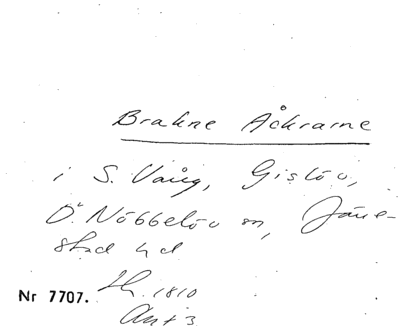 Brahne Åkrarne
i S. Vång, Gislöv,
Ö. Nöbbelöv sn, Järre-
stad hd
Nr 7707. 1810
Akt 3